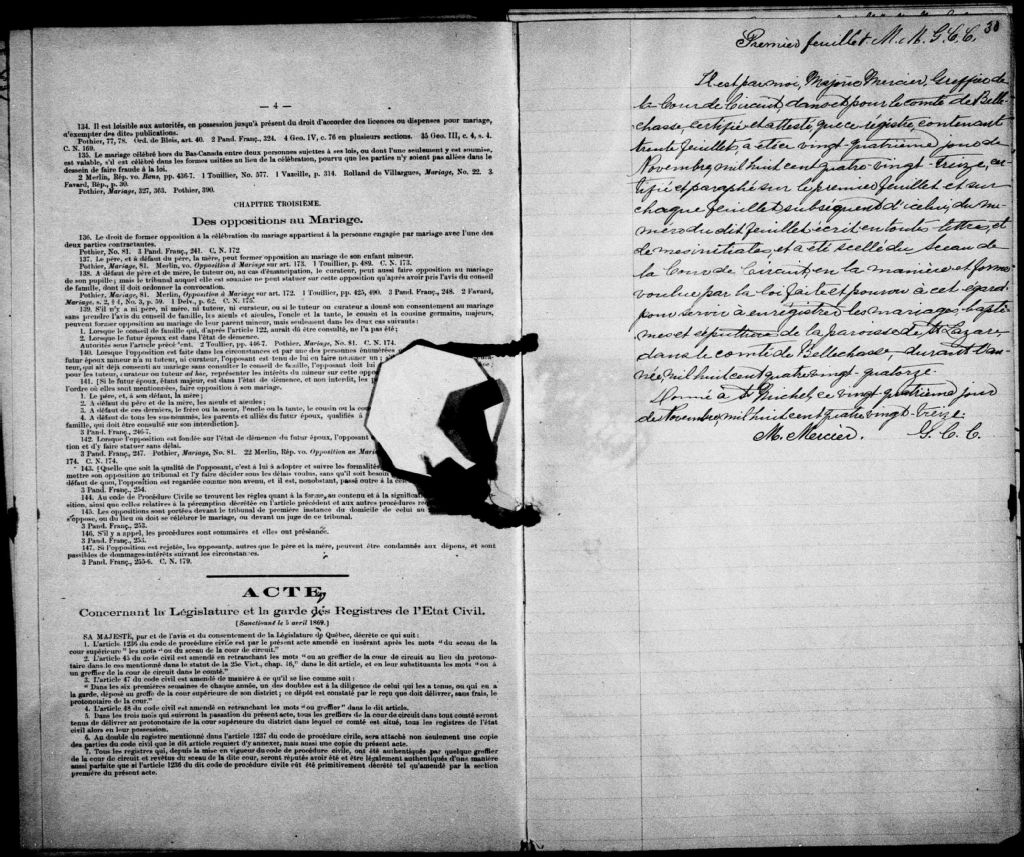 — 4 —
134. Il est loisible aux autorités, en possession jusqu'à présent du droit d'accorder des licences ou dispenses pour mariage,
d'exempter des dites publications.
Pothier, 77, 78. Ord. de Blois, art. 40. 2 Pand. Franç., 324. 4 Geo. IV, c. 76 en plusieurs sections. 35 Geo. III, c. 4, s. 4.
C. N. 169.
135. Le mariage célébré hors du Bas-Canada entre deux personnes sujettes à ses lois, ou dont l'une seulement y est soumise,
est valable, s'il est célébré dans les formes usitées au lieu de la célébration, pourvu que les parties n'y soient pas allées dans le
dessein de faire fraude à la loi.
2 Merlin, Rép. vo. Bans, pp. 436-7. 1 Touillier, No. 577. 1 Vazeille, p. 314. Rolland de Villargues, Mariage, No. 22. 3
Favard, Rép., p. 39.
Pothier, Mariage, 327, 363. Pothier, 390.
CHAPITRE TROISIÈME.
Des oppositions au Mariage.
136. Le droit de former opposition à la célébration du mariage appartient à la personne engagée par mariage avec l'une des
deux parties contractantes.
Pothier, No. 81. 3 Pand. Franç., 241. C. N. 172.
137. Le père, et à défaut du père, la mère, peut former opposition au mariage de son enfant mineur.
Pothier, Mariage, 81. Merlin, vo. Opposition à Mariage sur art. 173. 1 Toullier, p. 489. C. N. 173.
138. A défaut de père et de mère, le tuteur ou, au cas d'émancipation, le curateur, peut aussi faire opposition au mariage
de son pupille; mais le tribunal auquel elle est soumise ne peut statuer sur cette opposition qu'après avoir pris l'avis du conseil
de famille, dont il doit ordonner la convocation.
Pothier, Mariage, 81. Merlin, Opposition à Mariage sur art. 172. 1 Toullier, pp. 425, 490. 3 Pand. Franç., 248. 2 Favard,
Mariage, s. 2, § 4, No. 3, p. 59. 1 Delv., p. 62. C. N. 175.
139. S'il n'y a ni père, ni mère, ni tuteur, ni curateur, ou si le tuteur ou curateur a donné son consentement au mariage
sans prendre l'avis du conseil de famille, les aïeuls et aïeules, l'oncle et la tante, le cousin et la cousine germains, majeurs,
peuvent former opposition au mariage de leur parent mineur, mais seulement dans les deux cas suivants:
1. Lorsque le conseil de famille qui, d'après l'article 122, aurait dû être consulté, ne l'a pas été;
2. Lorsque le futur époux est dans l'état de démence.
Autorités sous l'article précé'ent. 2 Toullier, pp. 446-7. Pothier, Mariage, No. 81. C. N. 174.
140. Lorsque l'opposition est faite dans les circonstances et par une des personnes énumérées
futur époux mineur n'a ni tuteur, ni curateur, l'opposant est tenu de lui en faire nommer un;
teur, qui ait déjà consenti au mariage sans consulter le conseil de famille, l'opposant doit
pour les tuteur, curateur ou tuteur ad hoc, représenter les intérêts du mineur sur cette
141. [Si le futur époux, étant majeur, est dans l'état de démence, et non interdit, les
l'ordre où elles sont mentionnées, faire opposition à son mariage.
1. Le père, et, à son défaut, la mère;
2. A défaut du père et de la mère, les aïeuls et aïeules;
3. A défaut de ces derniers, le frère ou la sœur, l'oncle ou la tante, le cousin ou la
4. A défaut de tous les sus-nommés, les parents et alliés du futur époux, qualifiés à
famille, qui doit être consulté sur son interdiction].
3 Pand. Franç., 246-7.
142. Lorsque l'opposition est fondée sur l'état de démence du futur époux, l'opposant
tion et d'y faire statuer sans délai.
3 Pand. Franç., 247. Pothier, Mariage, No. 81. 22 Merlin, Rép. vo. Opposition au
174. C. N. 174.
143. [Quelle que soit la qualité de l'opposant, c'est à lui à adopter et suivre les formalités
mettre son opposition au tribunal et l'y faire décider sous les délais voulus, sans qu'il soit besoin
défaut de quoi, l'opposition est regardée comme non avenue, et il est, nonobstant, passé outre à la
3 Pand. Franç., 254.
144. Au code de Procédure Civile se trouvent les règles quant à la forme, au contenu et à la
sition, ainsi que celles relatives à la péremption décrétée en l'article précédent et aux autres procédures
145. Les oppositions sont portées devant le tribunal de première instance du domicile de celui au
s'oppose, ou du lieu où doit se célébrer le mariage, ou devant un juge de ce tribunal.
3 Pand. Franç., 253.
146. S'il y a appel, les procédures sont sommaires et elles ont préséance.
3 Pand. Franç., 255.
147. Si l'opposition est rejetée, les opposants, autres que le père et la mère, peuvent être condamnés aux dépens, et sont
passibles de dommages-intérêts suivant les circonstances.
3 Pand. Franç., 255-6. C. N. 179.
ACTE
Concernant la Législature et la garde des Registres de l'Etat Civil.
[Sanctionné le 5 avril 1869.]
SA MAJESTÉ, par et de l'avis et du consentement de la Législature de Québec, décrète ce qui suit:
1. L'article 1236 du code de procédure civile est par le présent acte amendé en insérant après les mots "du sceau de la
cour supérieure" les mots "ou du sceau de la cour de circuit."
2. L'article 45 du code civil est amendé en retranchant les mots "ou au greffier de la cour de circuit au lieu du protono-
taire dans le cas mentionné dans le statut de la 25e Vict., chap. 16," dans le dit article, et en leur substituant les mots "ou à
un greffier de la cour de circuit dans le comté."
3. L'article 47 du code civil est amendé de manière à ce qu'il se lise comme suit:
"Dans les six premières semaines de chaque année, un des doubles est à la diligence de celui qui les a tenus, ou qui en a
la garde, déposé au greffe de la cour supérieure de son district; ce dépôt est constaté par le reçu que doit délivrer, sans frais, le
protonotaire de la cour."
4. L'article 48 du code civil est amendé en retranchant les mots "ou greffier" dans le dit article.
5. Dans les trois mois qui suivront la passation du présent acte, tous les greffiers de la cour de circuit dans tout comté seront
tenus de délivrer au protonotaire de la cour supérieure du district dans lequel ce comté est situé, tous les registres de l'état
civil alors en leur possession.
6. Au double du registre mentionné dans l'article 1237 du code de procédure civile, sera attaché non seulement une copie
des parties du code civil que le dit article requiert d'y annexer, mais aussi une copie du présent acte.
7. Tous les registres qui, depuis la mise en vigueur du code de procédure civile, ont été authentiqués par quelque greffier
de la cour de circuit et revêtus du sceau de la dite cour, seront réputés avoir été et être légalement authentiqués d'une manière
aussi parfaite que si l'article 1236 du dit code de procédure civile eût été primitivement décrété tel qu'amendé par la section
première du présent acte.
30
Premier feuillet M. M. G. C. C.
Il est par moi, Majorie Mercier, Greffier de
la Cour de Circuit, dans et pour le comté de Belle-
chasse, certifié et attesté, que ce régistre, contenant
trente feuillets, a été ce vingt-quatrième jour de
Novembre, mil huit cent quatre-vingt-treize, cer-
tifié et paraphé sur le premier feuillet et sur
chaque feuillet subséquent d'icelui, du nu-
méro du dit feuillet écrit en toutes lettres, et
de mes initiales, et a été scellé du Sceau de
la Cour de Circuit, en la manière et forme
voulue par la loi faite et pourvu à cet égard
pour servir à enrégistrer les mariages, baptê-
mes et sépultures de la paroisse de St Lazare
dans le comté de Bellechasse, durant l'an-
née, mil huit cent quatre vingt-quatorze.
Donné à St Michel, ce vingt quatrième jour
de Novembre, mil huit cent quatre vingt-treize.
M. Mercier. G. C. C.